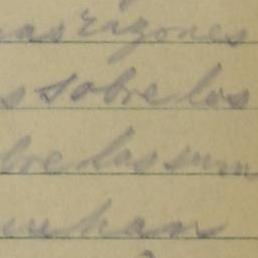 as rizones
s sobre los
bre las sum
e han